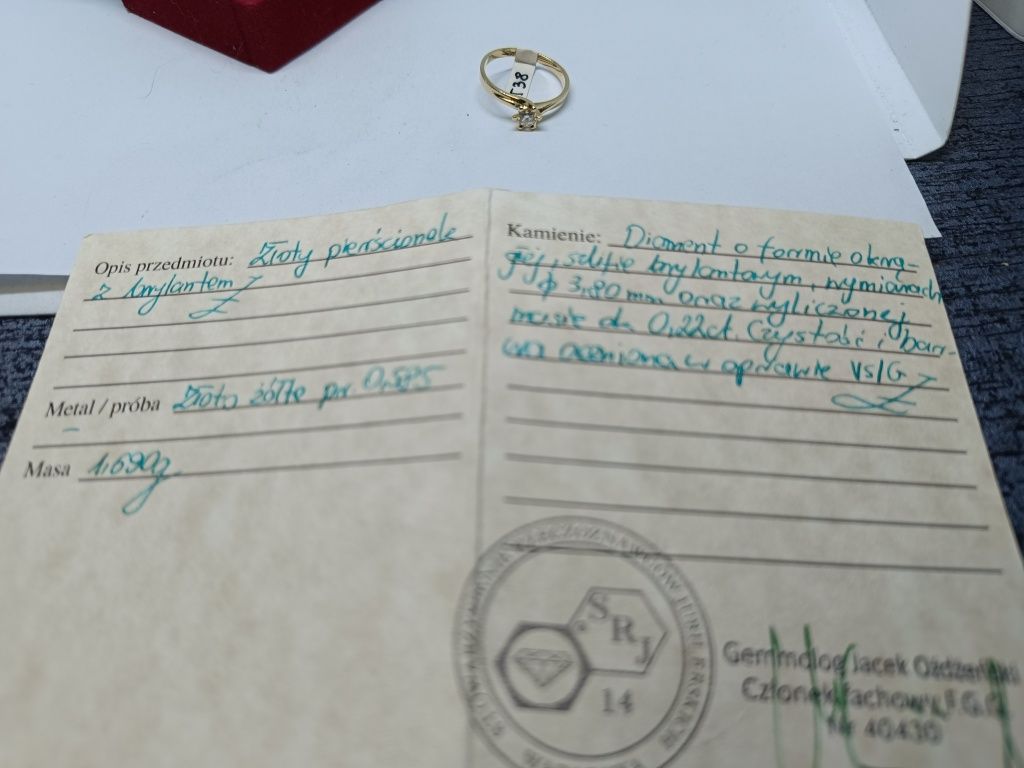 T38
Opis przedmiotu: Złoty pierścionek
z brylantem
Metal / próba Złoto żółte pr. 0,585
Masa 1,690g
Kamienie: Diament o formie okrą-
głej, szlifie brylantowym, wymiarach
ϕ 3,80 mm oraz wyliczonej
masie do 0,22ct. Czystość i bar-
wa oceniona w oprawie VS/G
STOWARZYSZENIE RZECZOZNAWCÓW JUBILERSKICH
SRJ
14
Gemmolog Jacek
Członek fachowy
Nr 40430